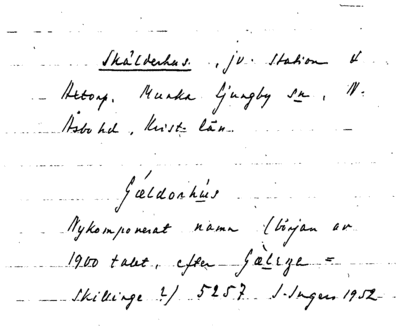 Skälderhus, jv. station i
Attorp, Munka Ljungby sn, N.
Åsbo hd, Krist. län.
Gældorhús
Nykomponerat namn (början av
1900 talet, efter Gælęge =
Skillinge ?) 5257 I. Ingers 1952